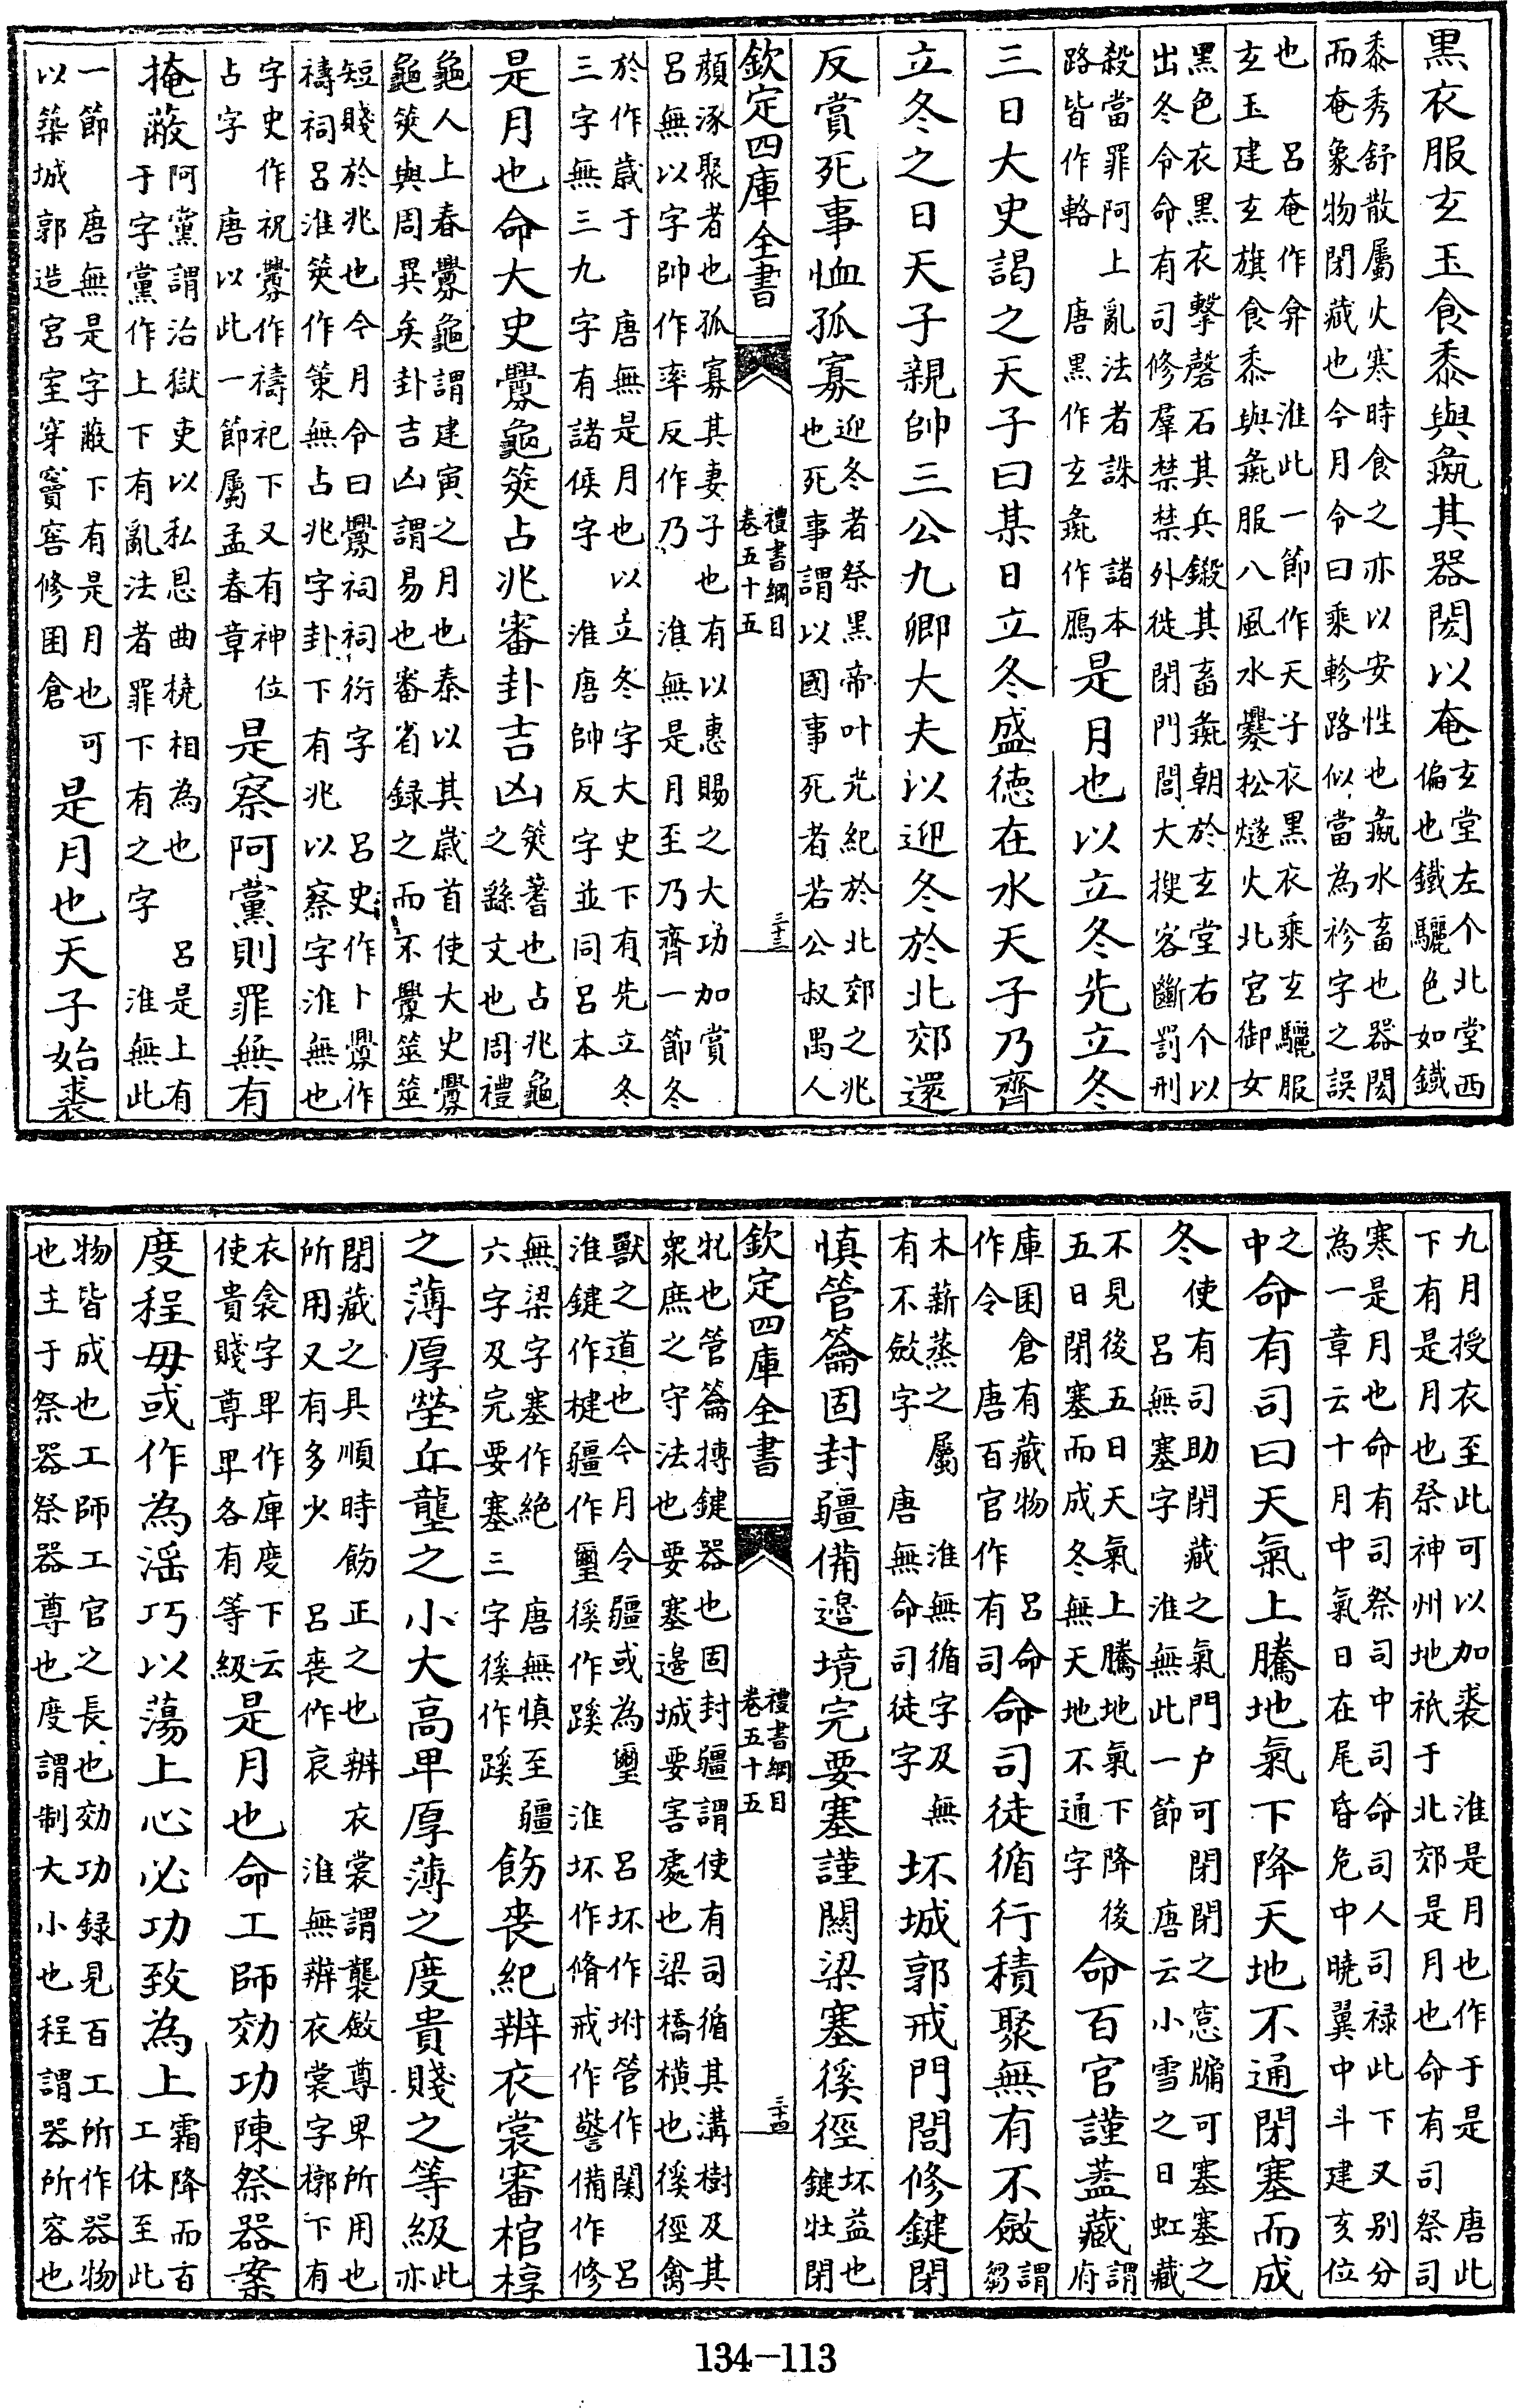 黒衣服玄玉食黍與彘其器閎以奄玄堂左个北堂西偏也鐵驪色如鐵
黍秀舒散屬火寒時食之亦以安性也彘水畜也器閎而奄象物閉藏也今月令曰乘軫路似當為袗字之誤
也　吕奄作弇　淮此一節作天子衣黒衣乘玄驪服玄玉建玄旗食黍與彘服八風水爨松燧火北宮御女
黒色衣黒衣擊磬石其兵鍛其畜彘朝於玄堂右个以出冬令命有司修羣禁禁外徙閉門閭大搜客斷罰刑
殺當罪阿上亂法者誅　諸本路皆作輅　唐黒作玄彘作鴈是月也以立冬先立冬
三日大史謁之天子曰某日立冬盛徳在水天子乃齊
立冬之日天子親帥三公九卿大夫以迎冬於北郊還
反賞死事恤孤寡迎冬者祭黒帝叶光紀於北郊之兆也死事謂以國事死者若公叔禺人
欽定四庫全書　禮書綱目卷五十五　三十三
顔涿聚者也孤寡其妻子也有以惠賜之大功加賞　吕無以字帥作率反作乃　淮無是月至乃齊一節冬
於作歳于　唐無是月也以立冬字大史下有先立冬三字無三九字有諸侯字　淮唐帥反字並同吕本
是月也命大史釁龜筴占兆審卦吉凶筴蓍也占兆龜之繇文也周禮
龜人上春釁龜謂建寅之月也秦以其歳首使大史釁龜筴與周異矣卦吉凶謂易也審省録之而不釁筮筮
短賤於兆也今月令曰釁祠祠衍字　吕史作卜釁作禱祠吕淮筴作策無占兆字卦下有兆以察字淮無也
字史作祝釁作禱祀下又有神位占字　唐以此一節屬孟春章是察阿黨則罪無有
掩蔽阿黨謂治獄吏以私恩曲橈相為也　吕是上有于字黨作上下有亂法者罪下有之字　淮無此
一節　唐無是字蔽下有是月也可以築城郭造宮室穿竇窖修囷倉是月也天子始裘
九月授衣至此可以加裘　淮是月也作于是　唐此下有是月也祭神州地祇于北郊是月也命有司祭司
寒是月也命有司祭司中司命司人司禄此下又别分為一章云十月中氣日在尾昏危中曉翼中斗建亥位
之中命有司曰天氣上騰地氣下降天地不通閉塞而成
冬使有司助閉藏之氣門户可閉閉之窓牖可塞塞之　吕無塞字　淮無此一節　唐云小雪之日虹藏
不見後五日天氣上騰地氣下降後五日閉塞而成冬無天地不通字命百官謹蓋藏謂府
庫囷倉有藏物　吕命作令　唐百官作有司命司徒循行積聚無有不斂謂芻
木薪蒸之屬　淮無循字及無有不斂字　唐無命司徒字坏城郭戒門閭修鍵閉
慎管籥固封疆備邊境完要塞謹關梁塞徯徑坏益也鍵牡閉
牝也管籥搏鍵器也固封疆謂使有司循其溝樹及其衆庶之守法也要塞邊城要害處也梁橋横也徯徑禽
欽定四庫全書　禮書綱目卷五十五　三十四
獸之道也今月令疆或為璽　吕坏作坿管作關　吕淮鍵作楗疆作璽徯作蹊　淮坏作脩戒作警備作修
無梁字塞作絶　唐無慎至疆六字及完要塞三字徯作蹊飭喪紀辨衣裳審棺椁
之薄厚塋丘壟之小大高卑厚薄之度貴賤之等級此亦
閉藏之具順時飭正之也辨衣裳謂襲斂尊卑所用也所用又有多少　吕喪作哀　淮無辨衣裳字槨下有
衣衾字卑作庳度下云使貴賤尊卑各有等級是月也命工師効功陳祭器案
度程毋或作為淫巧以蕩上心必功致為上霜降而百工休至此
物皆成也工師工官之長也効功録見百工所作器物也主于祭器祭器尊也度謂制大小也程謂器所容也
134—113